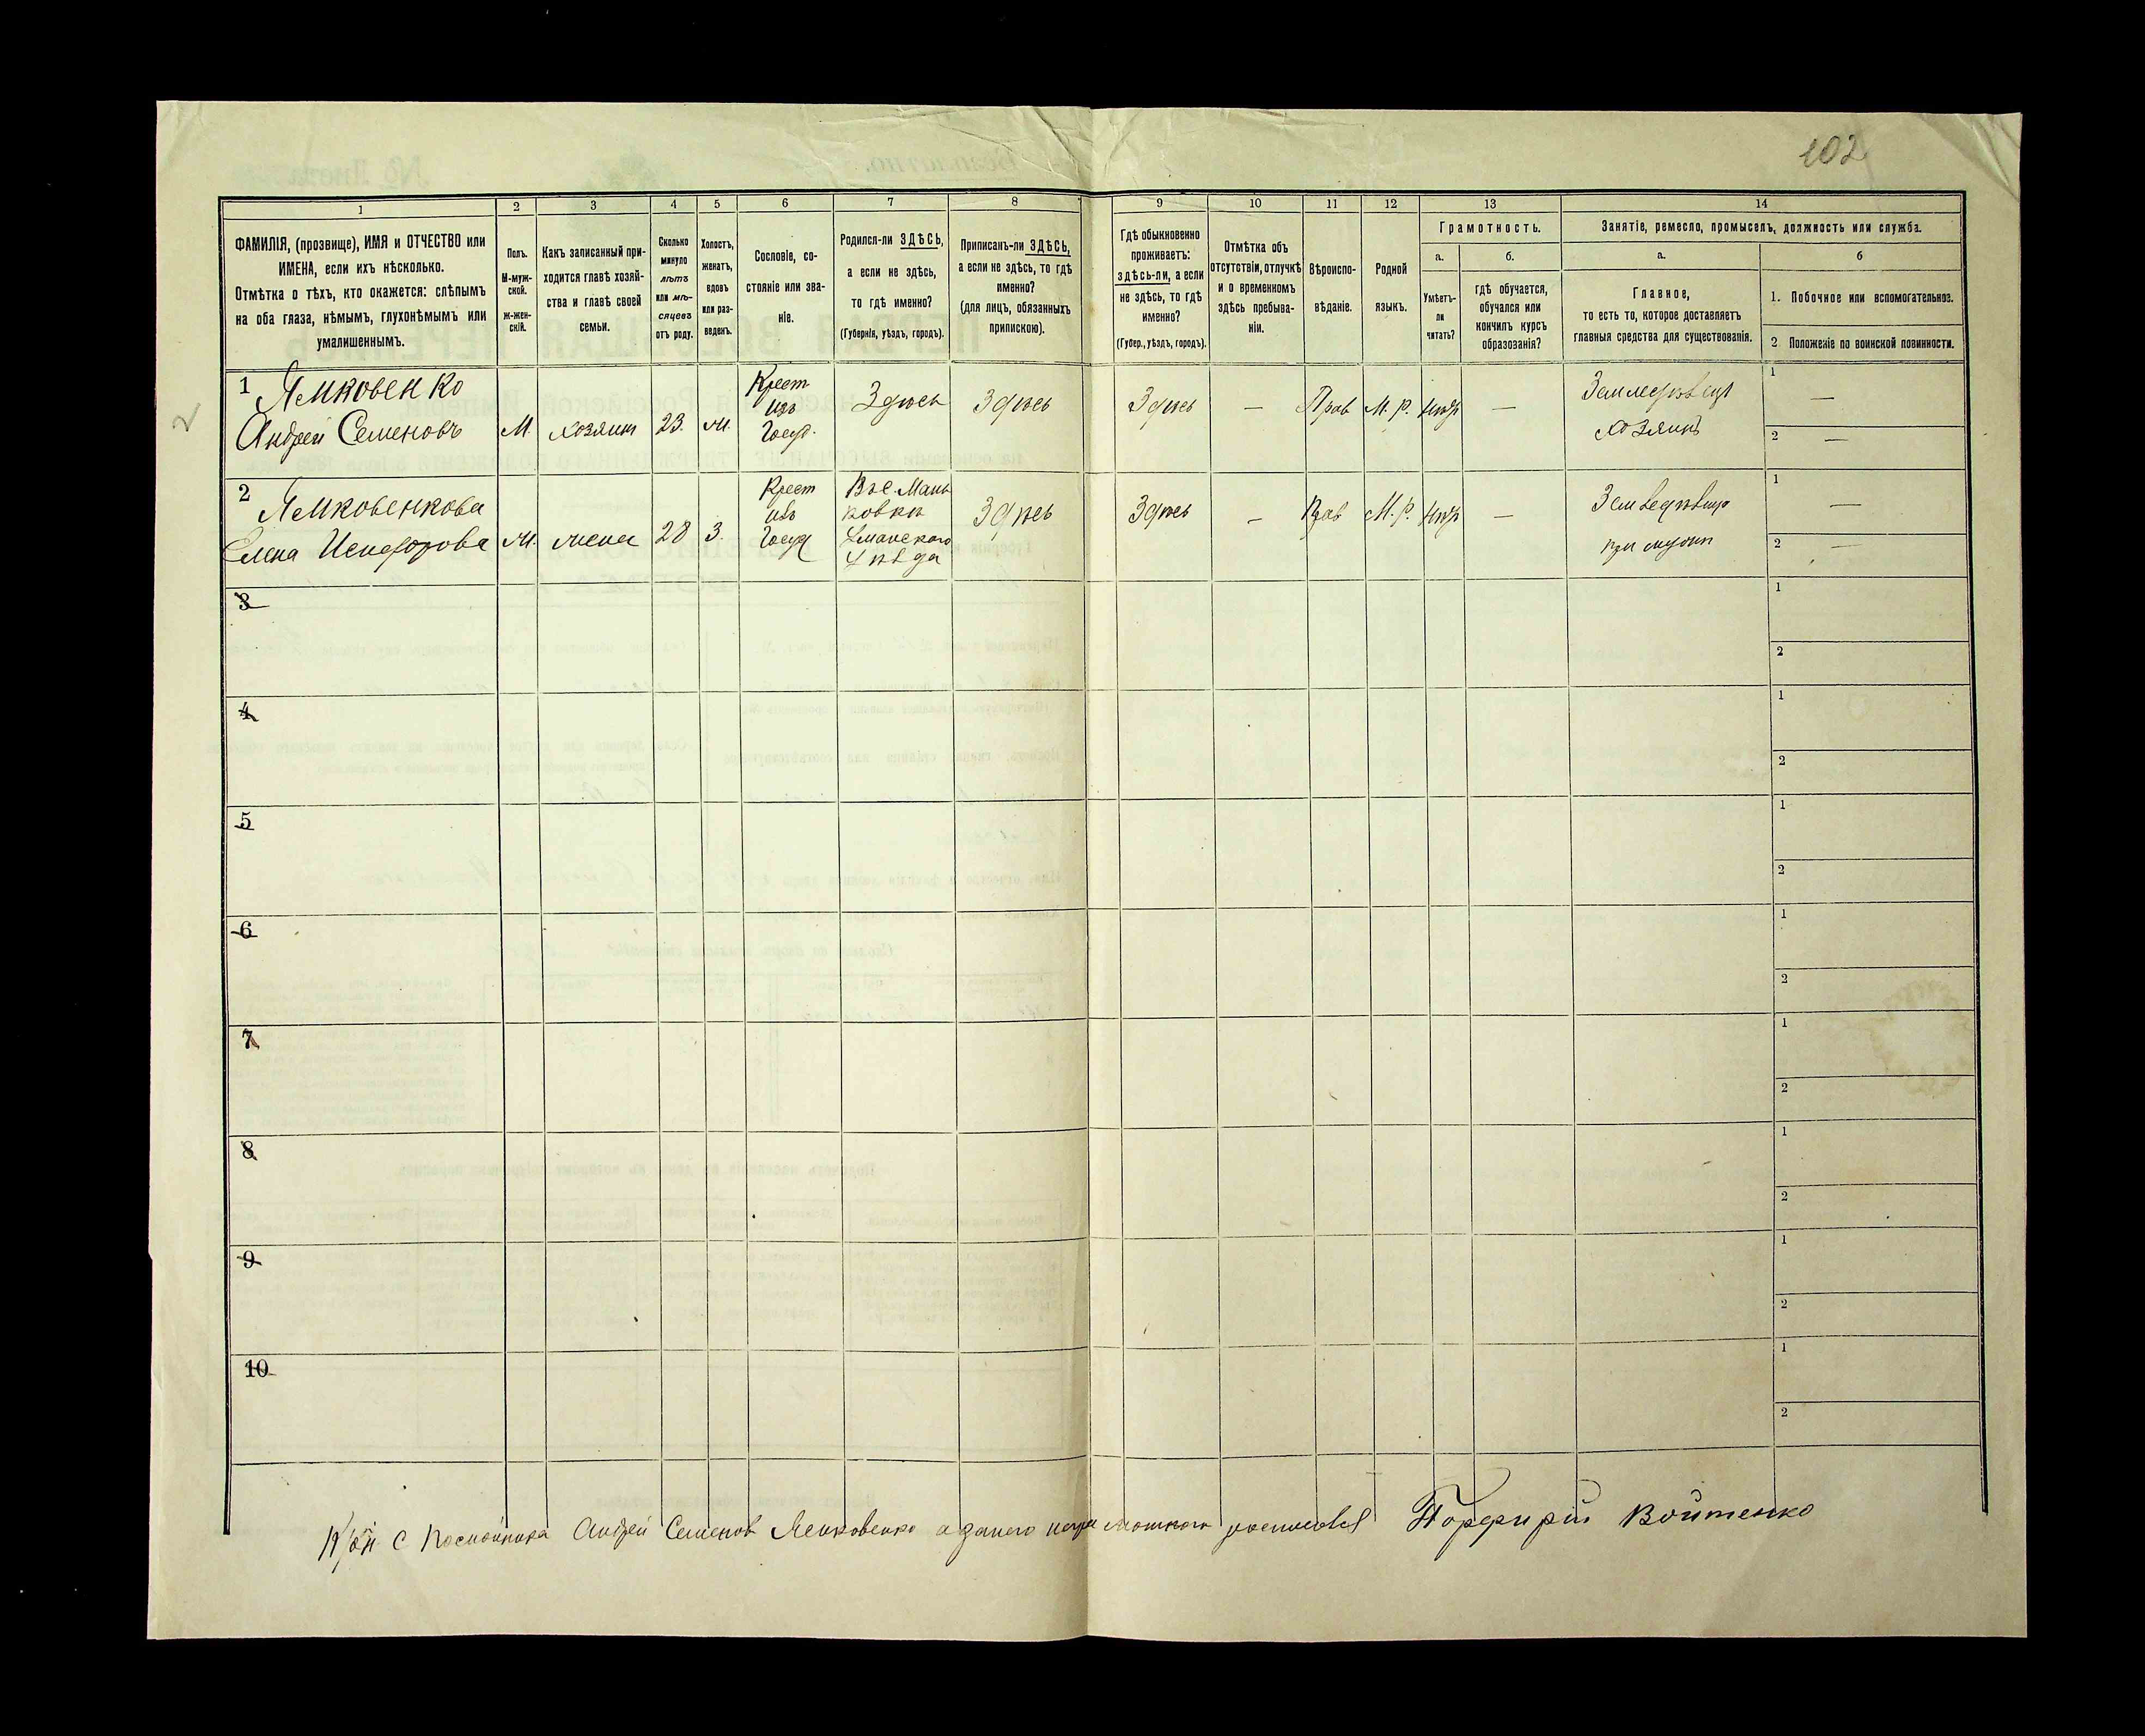 102
1 2 3 4 5 6 7 8 9 10 11 12 13 14
ФАМИЛІЯ, (прозвище), ИМЯ и ОТЧЕСТВО или
ИМЕНА, если ихъ нѣсколько.
Отмѣтка о тѣхъ, кто окажется: слѣпымъ
на оба глаза, нѣмымъ, глухонѣмымъ или
умалишеннымъ.
Полъ.
М-муж-
ской.
Ж-жен-
скій.
Какъ записанный при-
ходится главѣ хозяй-
ства и главѣ своей
семьи.
Сколько
минуло
лѣтъ
или мѣ-
сяцевъ
отъ роду.
Холостъ,
женатъ,
вдовъ
или раз-
веденъ.
Сословіе, со-
стояніе или зва-
ніе.
Родился-ли ЗДѢСЬ,
а если не здѣсь,
то гдѣ именно?
(Губернія, уѣздъ, городъ).
Приписанъ-ли ЗДѢСЬ,
а если не здѣсь, то гдѣ
именно?
(для лицъ, обязанныхъ
припискою).
Гдѣ обыкновенно
проживаетъ:
здѣсь-ли, а если
не здѣсь, то гдѣ
именно?
(Губер., уѣздъ, городъ).
Отмѣтка объ
отсутствіи, отлучкѣ
и о временномъ
здѣсь пребыва-
ніи.
Вѣроиспо-
вѣданіе.
Родной
языкъ.
Грамотность.
а.
Умѣетъ-
ли
читать?
б.
гдѣ обучается,
обучался или
кончилъ курсъ
образованія?
Занятіе, ремесло, промыселъ, должность или служба.
а.
Главное,
то есть то, которое доставляетъ
главныя средства для существованія.
б
1. Побочное или вспомогательное.
2. Положеніе по воинской повинности.
2
1 Ямковенко
Андрей Семеновъ
М. хозяин 23. ж.
Крест
изъ
Госуд.
Здѣсь Здѣсь Здѣсь — Прав М. р. нѣт —
Землед
хозяинъ
1 —
2 —
2 Ямковенкова
Елена
ж. жена 28 З.
Крест
изъ
Госуд
Вь с. Мань
ковки
Уманскаго
Уѣзда
Здѣсь Здѣсь — Прав М. р. нѣт —
при мужи
1 —
2 —
3 1
2
4 1
2
5 1
2
6 1
2
7 1
2
8 1
2
9 1
2
10 1
2
с Андрей Семенов Порфирій Войтенко